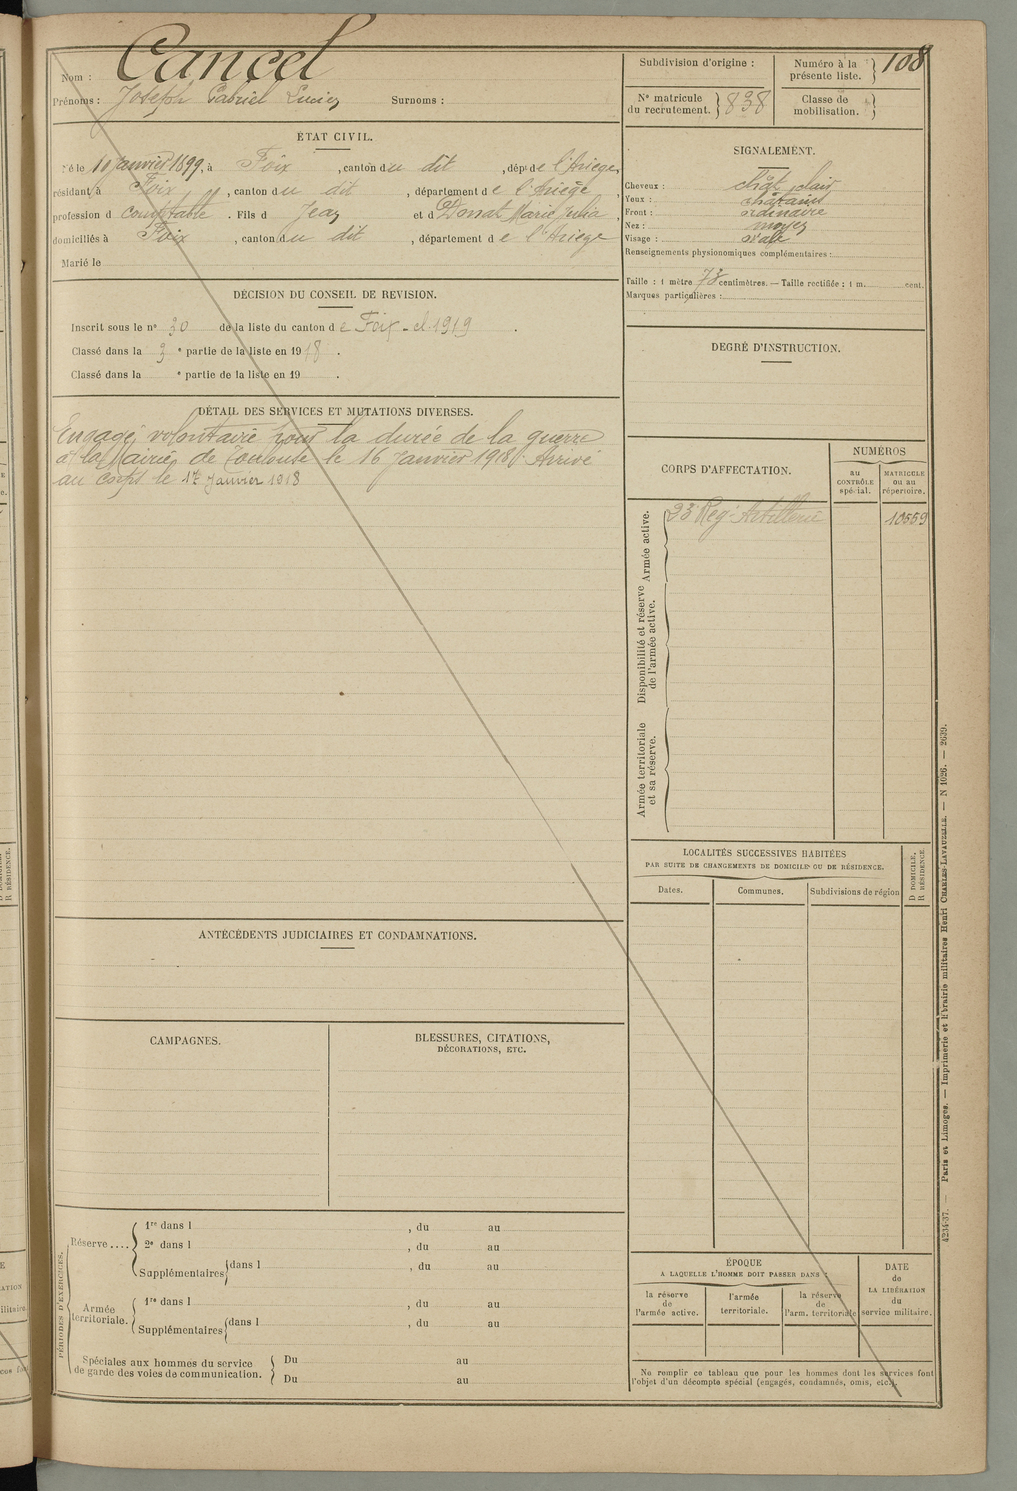 Nom : Cancel
Prénoms : Joseph Gabriel Lucien Surnoms :
ÉTAT CIVIL.
Né le 10 janvier 1899, à Foix, canton du dit, dépt de l'Ariège,
résidant à Foix, canton du dit, département de l'Ariège
profession d comptable. Fils d Jean et d Donat Marie Julia,
domiciliés à Foix, canton du dit, département de l'Ariège
Marié le
DÉCISION DU CONSEIL DE REVISION.
Inscrit sous le n° 30 de la liste du canton de Foix - cl. 1919.
Classé dans la 3e partie de la liste en 1918.
Classé dans la e partie de la liste en 19 .
DÉTAIL DES SERVICES ET MUTATIONS DIVERSES.
Engagé volontaire pour la durée de la guerre
à la Mairie de Toulouse le 16 Janvier 1918. Arrivé
au corps le 17 Janvier 1918
ANTÉCÉDENTS JUDICIAIRES ET CONDAMNATIONS.
CAMPAGNES.
BLESSURES, CITATIONS,
DÉCORATIONS, ETC.
PÉRIODES D'EXERCICES.
Réserve....
1re dans l , du au
2e dans l , du au
Supplémentaires dans l , du au
Armée territoriale.
1re dans l , du au
Supplémentaires dans l , du au
Spéciales aux hommes du service
de garde des voies de communication.
Du au
Du au
Subdivision d'origine :
Numéro à la présente liste. 108
N° matricule du recrutement. 838
Classe de mobilisation.
SIGNALEMENT.
Cheveux : chât clair
Yeux : châtains
Front : ordinaire
Nez : moyen
Visage : ovale
Renseignements physionomiques complémentaires :
Taille : 1 mètre 73 centimètres. — Taille rectifiée : 1 m. cent.
Marques particulières :
DEGRÉ D'INSTRUCTION.
CORPS D'AFFECTATION.
NUMÉROS
au CONTRÔLE spécial.
MATRICULE ou au répertoire.
Armée active.
23e Reg. Artillerie 10559
Disponibilité et réserve de l'armée active.
Armée territoriale et sa réserve.
LOCALITÉS SUCCESSIVES HABITÉES
PAR SUITE DE CHANGEMENTS DE DOMICILE OU DE RÉSIDENCE.
Dates. Communes. Subdivisions de région
D DOMICILE.
R RÉSIDENCE.
ÉPOQUE
A LAQUELLE L'HOMME DOIT PASSER DANS :
la réserve de l'armée active.
l'armée territoriale.
la réserve de l'arm. territoriale
DATE de LA LIBÉRATION du service militaire.
Ne remplir ce tableau que pour les hommes dont les services font
l'objet d'un décompte spécial (engagés, condamnés, omis, etc.).
4234-37. — Paris et Limoges. — Imprimerie et librairie militaires Henri CHARLES-LAVAUZELLE. — N 1026. — 2639.